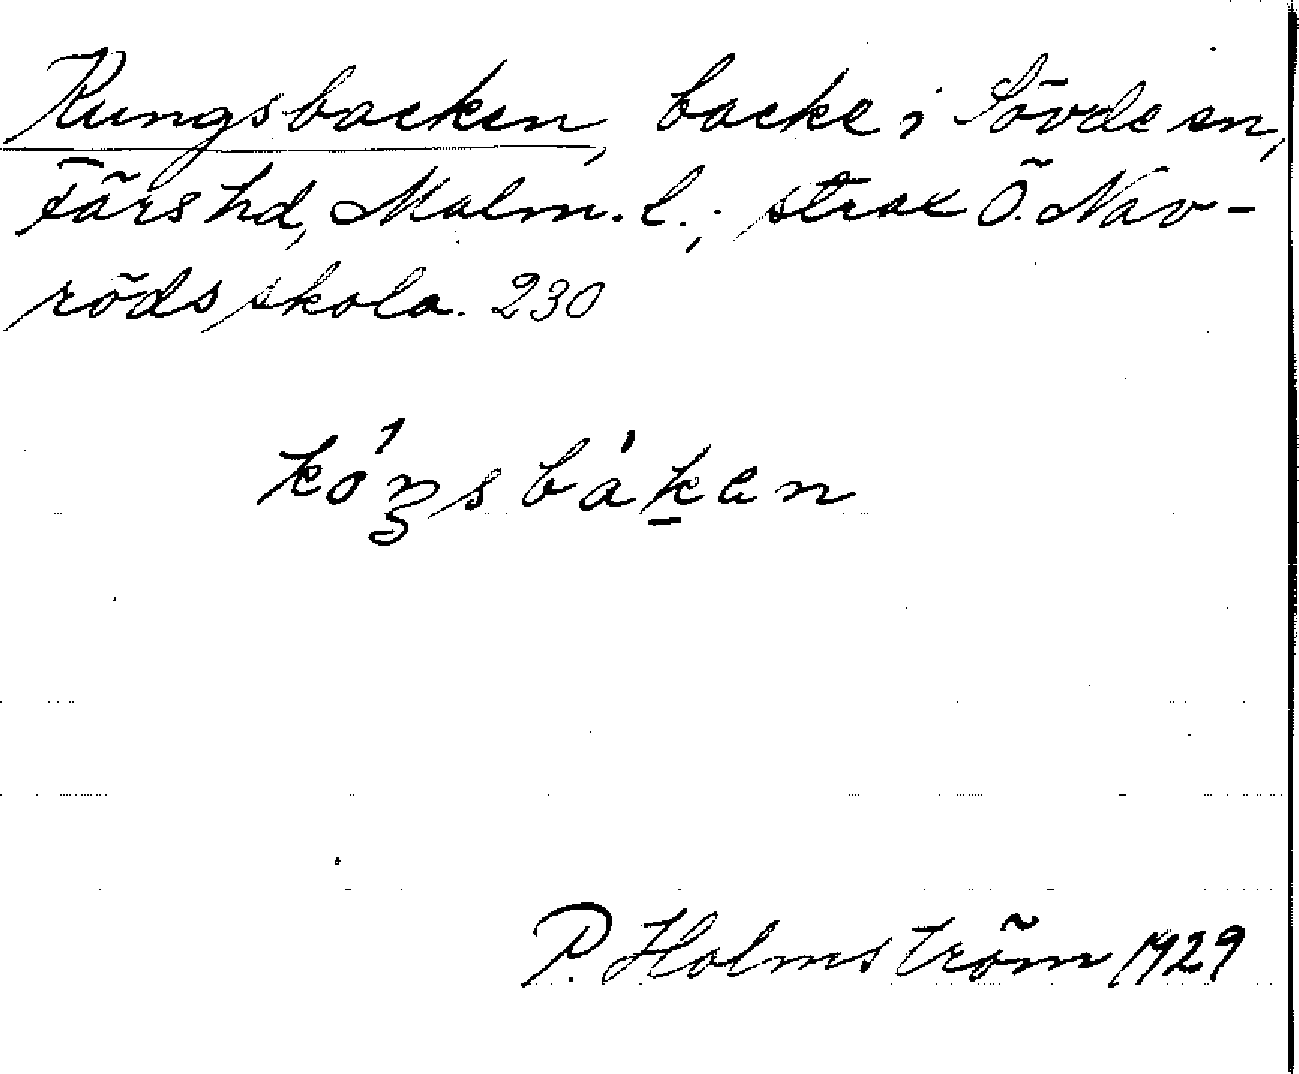 Kungsbacken, backe i Sövde sn,
Färs hd, Malm. l.; strax Ö. Nav-
röds skola. 230
kóŋsbákən
P. Holmström 1929